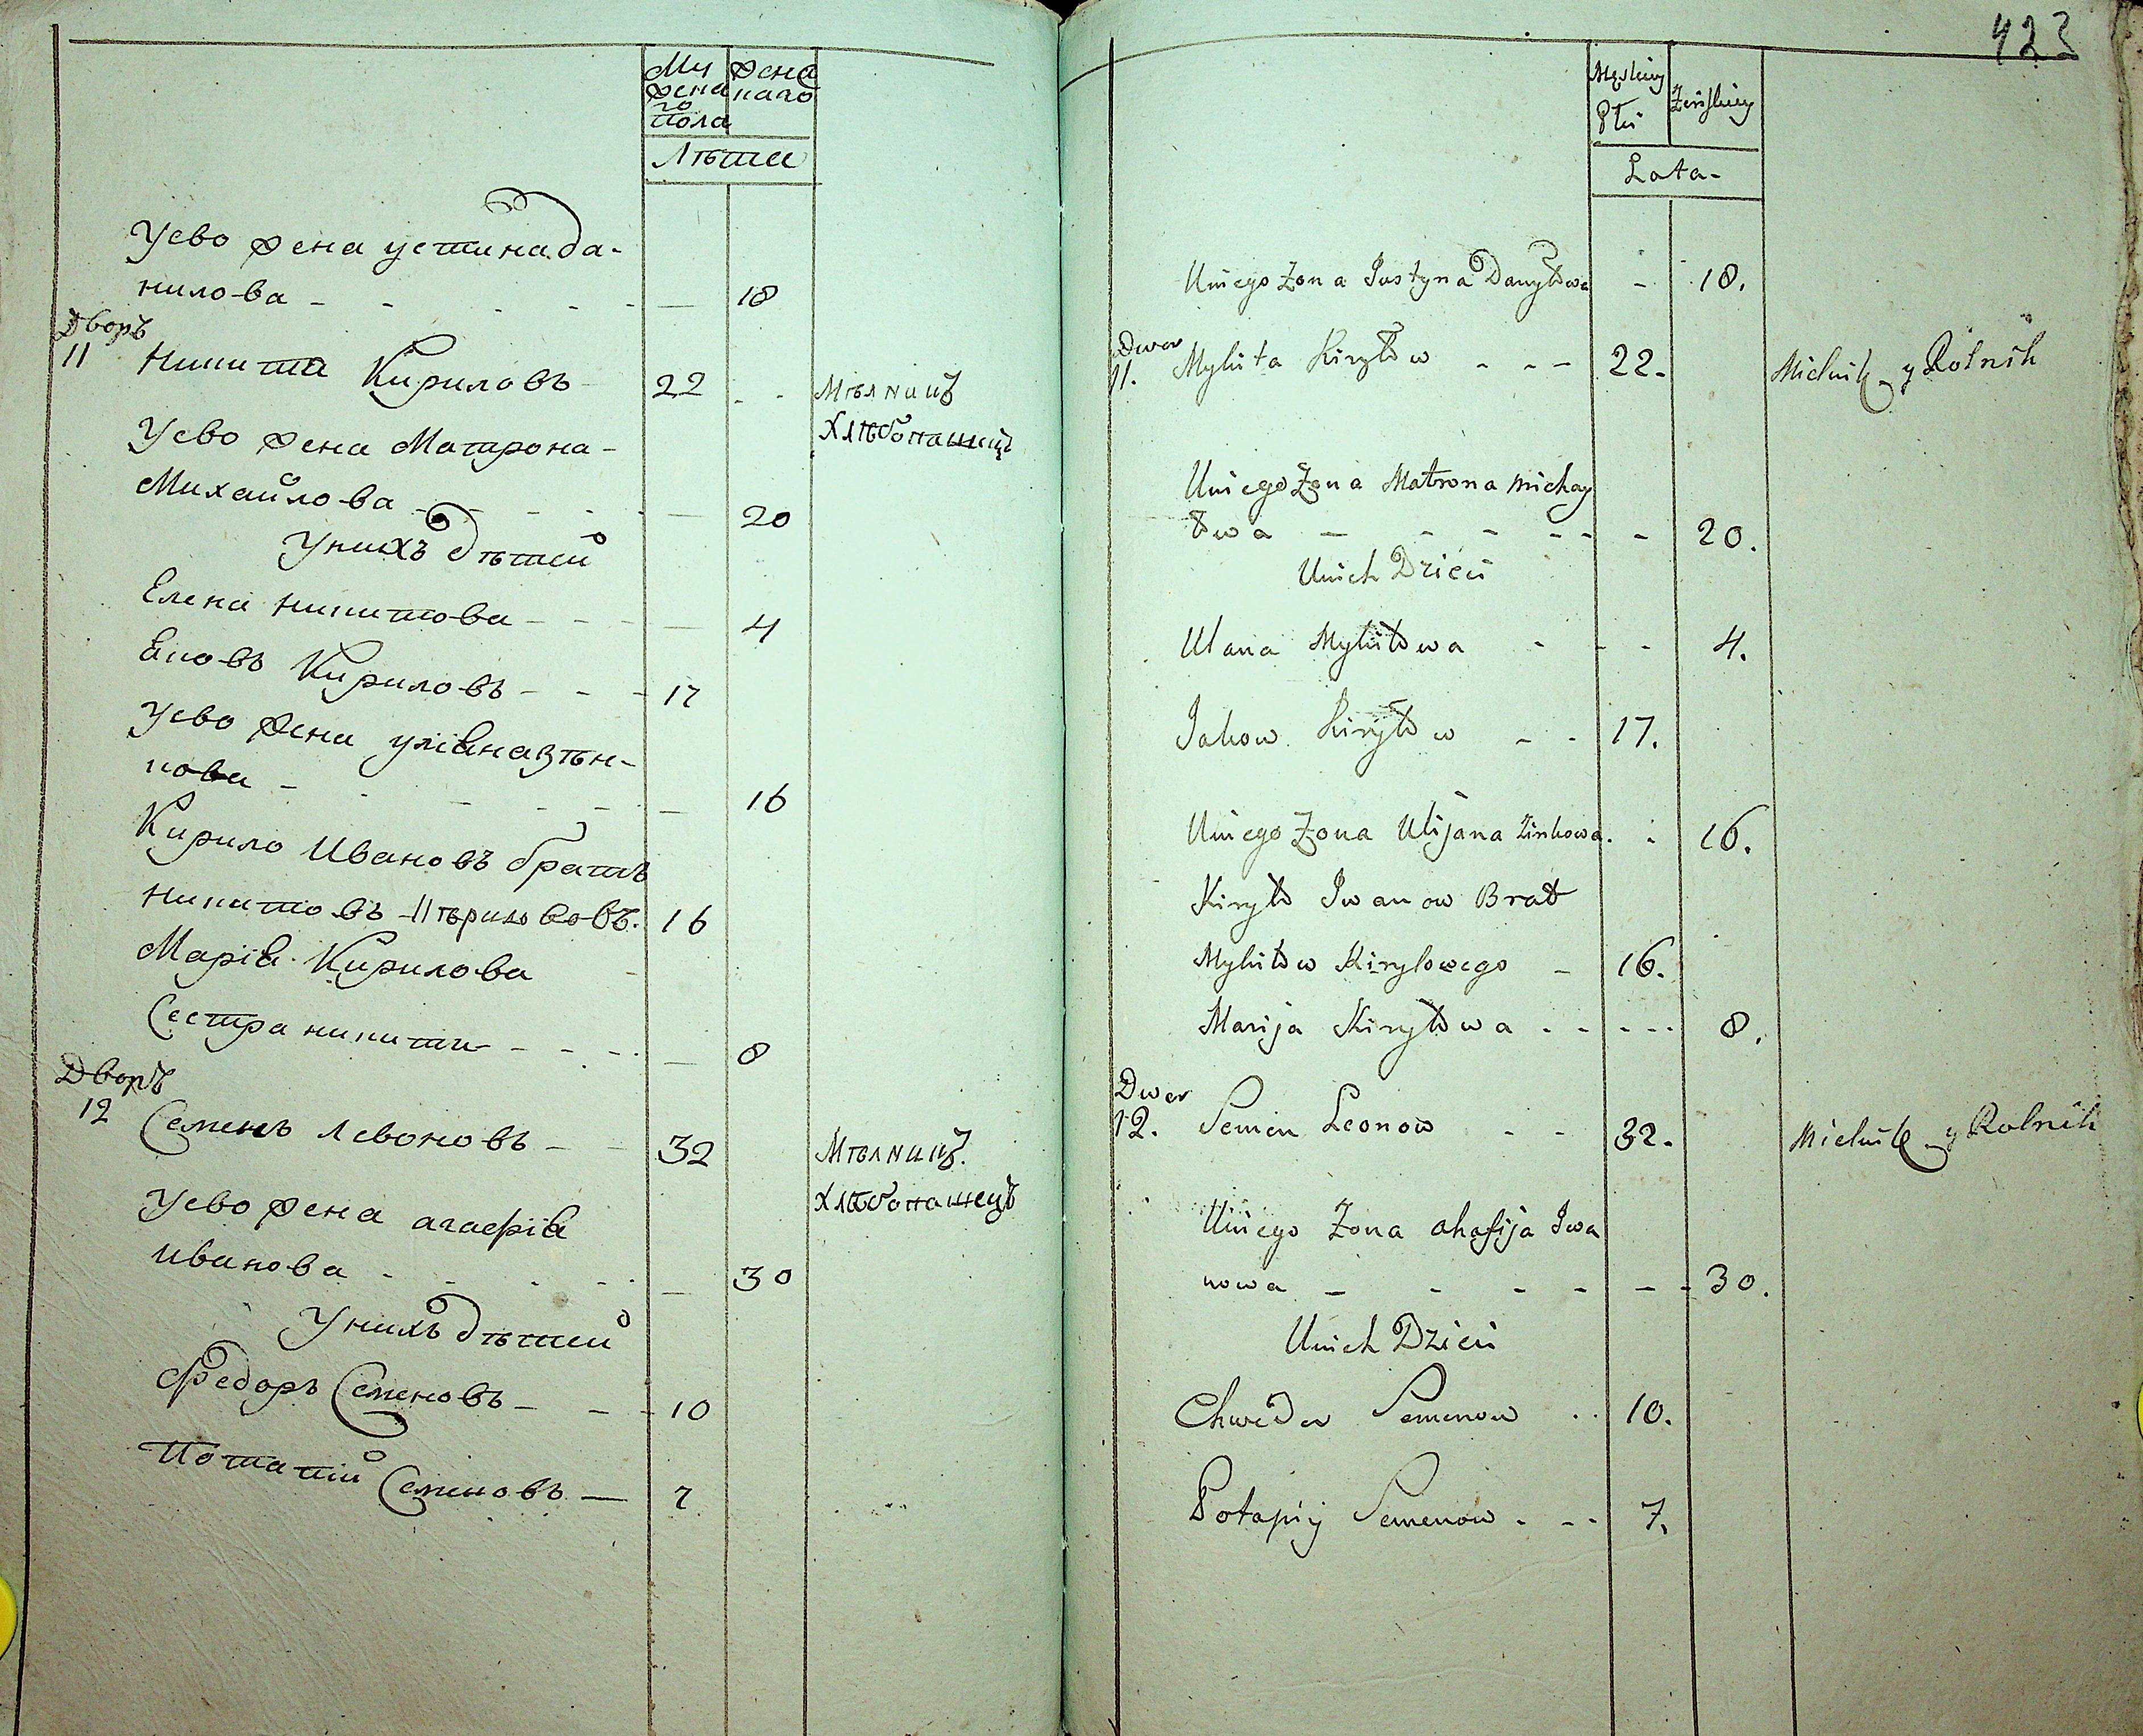 Му Жена
жена наго
го
пола
Лѣта
Уево жена устина да-
нилова - - - - - 18
Дворъ
11 Никита Кириловъ 22 - - Мѣлникъ
Хлѣбопашецъ
Уево жена Матрона -
Михайлова - - - - - 20
Унихъ дѣтей
Елена никитова - - - 4
Яковъ Кириловъ - - - 17
Уево жена уліяна Зѣн-
кова - - - - - 16
Кирило Ивановъ братъ
никитовъ Кириловъ. 16
Марія Кирилова
Сестра никиты - - - - 8
Дворъ
12 Семенъ левоновъ - 32 Мѣлникъ.
Хлѣбопашецъ
Уево жена агафія
иванова - - - - - 30
Унихъ дѣтей
Федоръ Семеновъ - - - 10
Потапій Семеновъ — 7
423
Męskiey Żeńskiey
Płci
Lata-
Uniego Żona Justyna Danyłowa - 18.
Dwor
11. Mykita Kiryłow - - - 22. Mielnik y Rolnik
Uniego Żona Matrona Michay
łowa - - - - - - 20.
Unich Dzieci
Ulana Mykitowa - - - 4.
Jakow Kiryłow - - 17.
Uniego Żona Ulijana Zinkowa. - 16.
Kiryło Iwanow Brat
Mykitow Kirylowego - 16.
Marija Kiryłowa - - - - - 8.
Dwor
12. Semen Leonow - - 32. Mielnik y Rolnik
Uniego Żona ahafija Iwa
nowa - - - - - - 30.
Unich Dzieci
Chwedor Semenow . . 10.
Potapiy Semenow. - - 7.